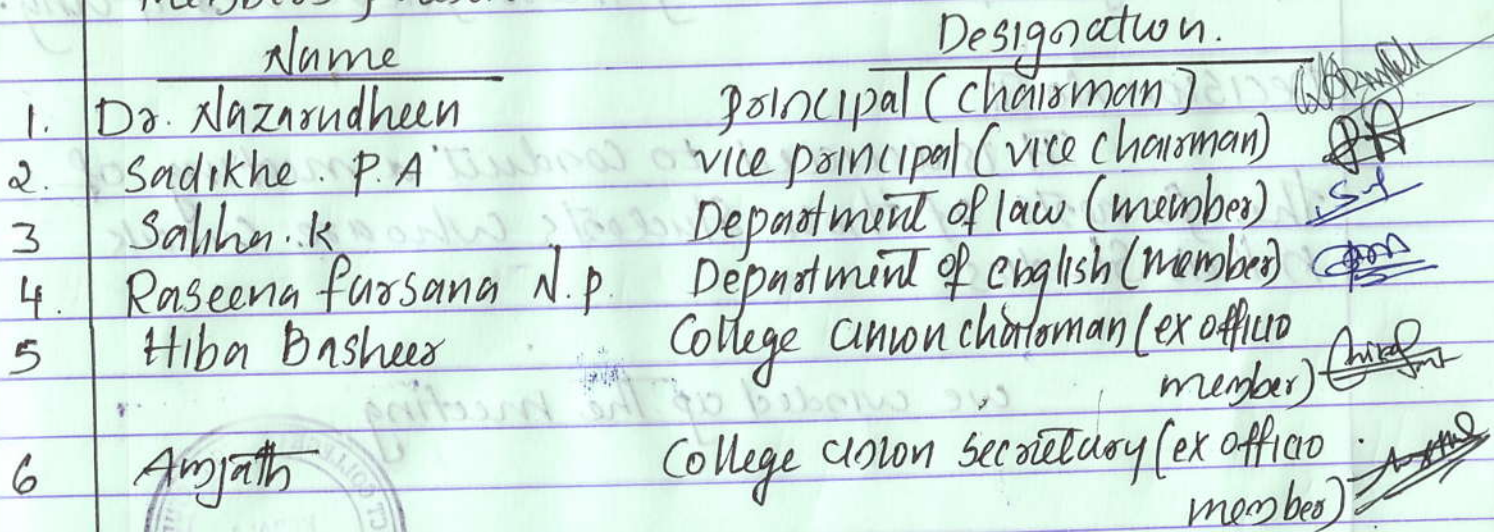 Members present
Name Designation.
1. Dr. Nazarudheen principal (chairman)
2. Sadikhe . P.A vice principal (vice chairman)
3 Saliha . k Department of law (member)
4. Raseena farsana N.p. Department of english (member)
5 Hiba Basheer College union chairman (ex officio
member)
6 Amjath College union secretary (ex officio
member)